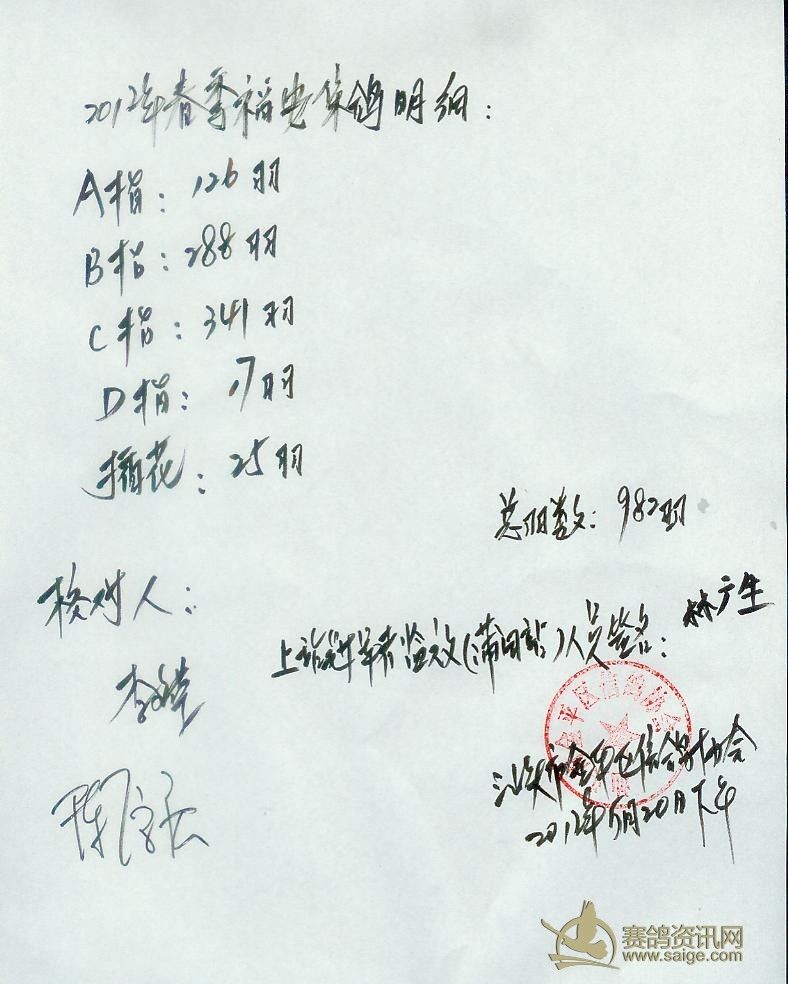 2012年春季福安集鸽明细：
A指：126羽
B指：288羽
C指：341羽
D指：17羽
插花：25羽
总羽数：982羽
核对人：
上站 监放(莆田站)人员签名：林广生
李
陈
金平区信鸽协会
汕头市金平区信鸽协会
2012年5月20日下午
赛鸽资讯网
www.saige.com